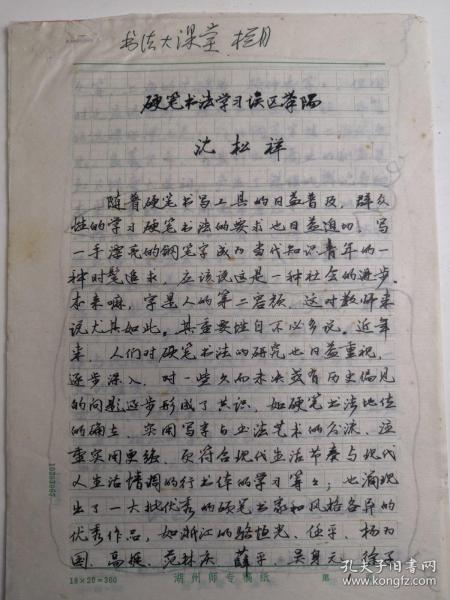 书法大课堂 栏目
硬笔书法学习误区举隅
沈松祥
随着硬笔书写工具的日益普及，群众
性的学习硬笔书法的要求也日益迫切，写
一手漂亮的钢笔字成为当代知识青年的一
种时髦追求，应该说这是一种社会的进步。
本来嘛，字是人的第二容颜，这对教师来
说尤其如此。其重要性自不必多说。近年
来，人们对硬笔书法的研究也日益重视，
逐步深入，对一些久而未决或有历史偏见
的问题逐步形成了共识，如硬笔书法地位
的确立，实用写字与书法艺术的分流，注
重实用更强、更符合现代生活节奏与现代
人生活情调的行书体的学习等等；也涌现
出了一大批优秀的硬笔书家和风格各异的
优秀作品，如浙江的骆恒光、任平、杨为
国、高振、范林庆、薛平、吴身元、徐子
18×20=360
湖州师专稿纸
第
孔夫子旧书网